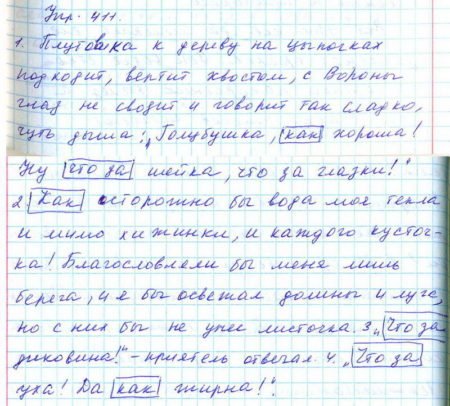 Упр. 411.
1. Плутовка к дереву на цыпочках
подходит, вертит хвостом, с Вороны
глаз не сводит и говорит так сладко,
чуть дыша: „Голубушка, как хороша!
Ну что за шейка, что за глазки!"
2. Как осторожно бы вода моя текла
и мимо хижинки, и каждого кусточ-
ка! Благословляли бы меня лишь
берега, и я бы освежал долины и луга,
но с них бы не унес листочка. 3. „Что за
диковина!" – приятель отвечал. 4. „Что за
уха! Да как жирна!".